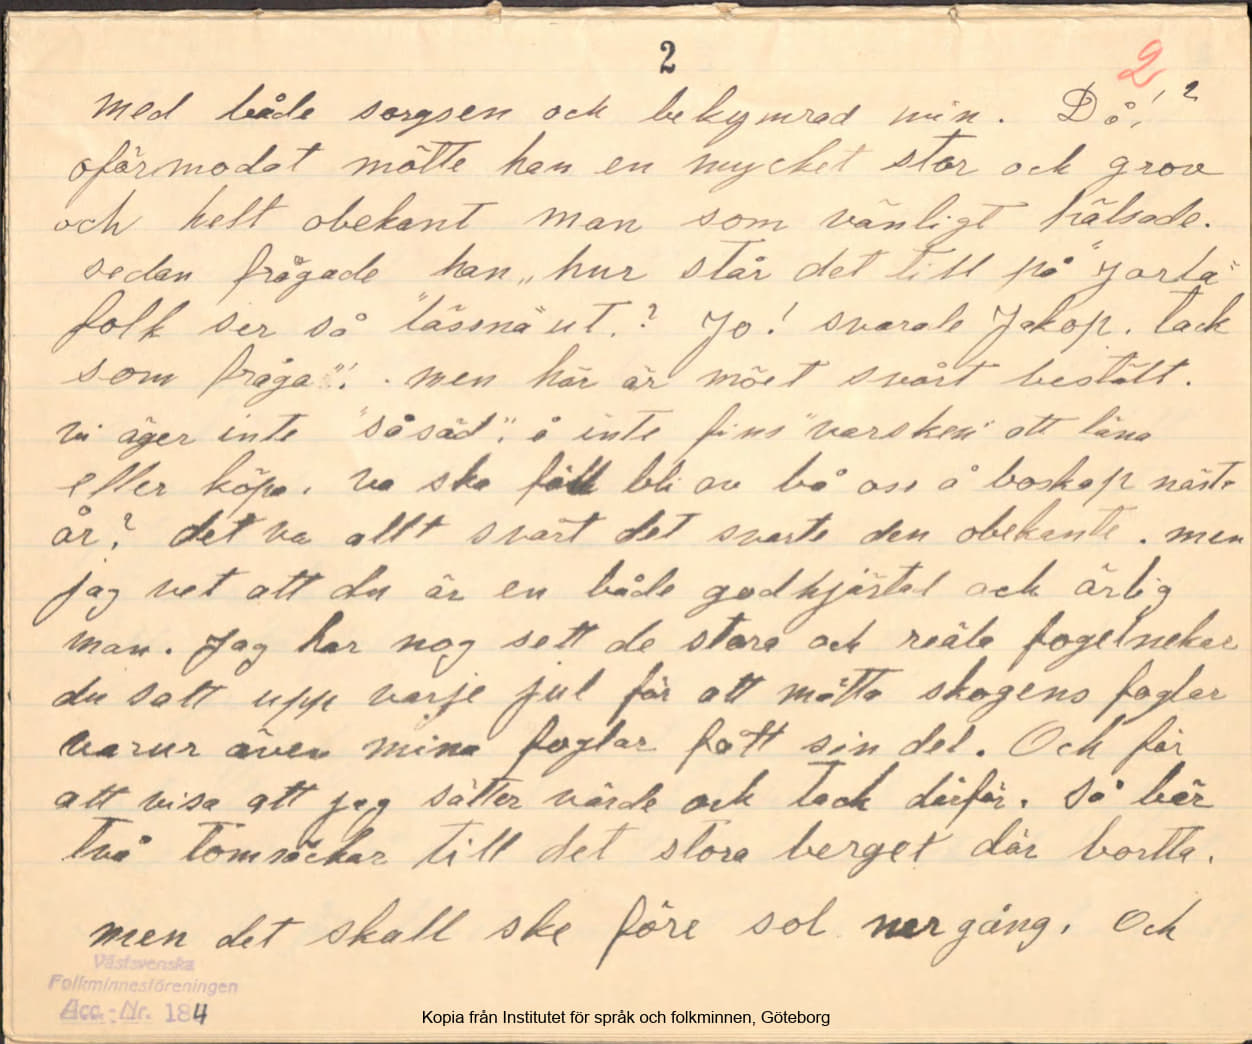 2
2
med både sorgsen och bekymrad min. Då! ?
oförmodat mötte han en mycket stor och grov
och helt obekant man som vänligt hälsade.
sedan frågade han „hur står det till på "jorla"
folk ser så "lässna" ut.? Jo! svarade Jakop. tack
som fråga"! . men här är möet svårt bestält.
vi äger inte "såsäd". å inte fins "varsken" att låna
eller köpa. va ska fåll bli av bå oss å boskap näste
år? det va allt svårt det svarte den obekante. men
jag vet att du är en både godhjärtad och ärlig
man. Jag har nog sett de stora och reäla fogelnekar
du satt upp varje jul för att mätta skogens foglar
varur även mina foglar fått sin del. Och för
att visa att jag sätter värde och tack därför. Så bär
två tomsäckar till det stora berget där bortta.
men det skall ske före sol nergång. Och
Västsvenska
Folkminnesföreningen
Acc.-Nr. 184
Kopia från Institutet för språk och folkminnen, Göteborg